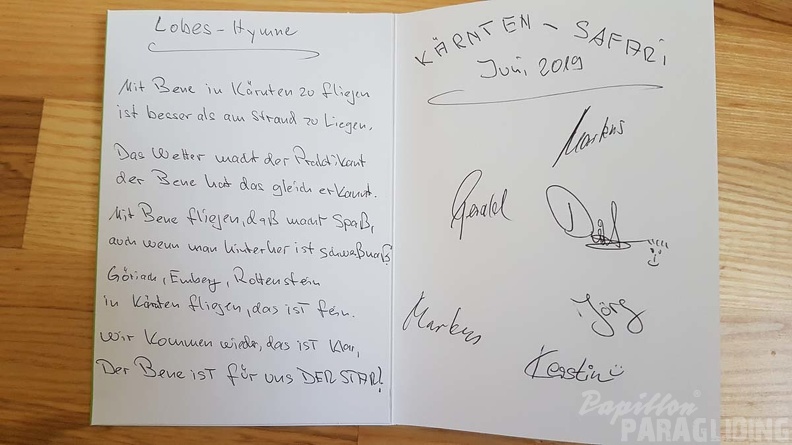 Lobes-Hymne
Mit Bene in Kärnten zu fliegen
ist besser als am Strand zu Liegen.
Das Wetter macht der Praktikant
der Bene hat das gleich erkannt.
Mit Bene fliegen, daß macht Spaß,
auch wenn man hinterher ist schweißnaß!
Göriach, Emberg, Rottenstein
in Kärnten fliegen, das ist fein.
Wir kommen wieder, das ist klar,
Der Bene ist für uns DER STAR!
KÄRNTEN - SAFARI
Juni 2019
Markus
Gerald
Jörg
Markus
Kerstin
Papillon
PARAGLIDING